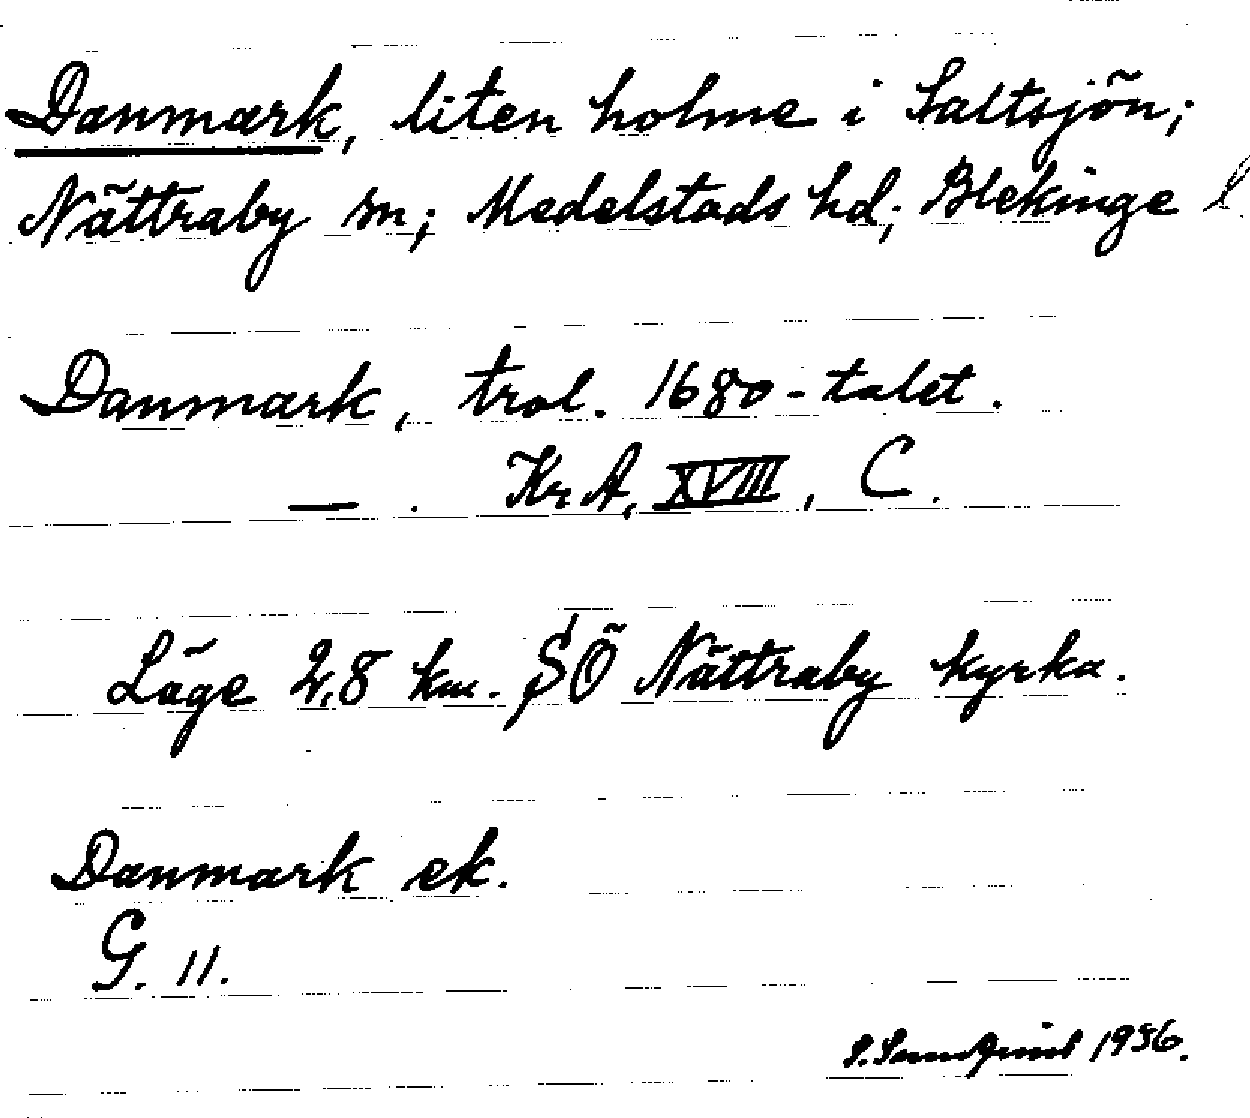 Danmark, liten holme i Saltsjön;
Nättraby sn; Medelstads hd; Blekinge l
Danmark, trol. 1680-talet.
— . Kr. A, XVIII, C.
Läge 2,8 km. SÖ Nättraby kyrka.
Danmark ek.
G. 11.
1956.